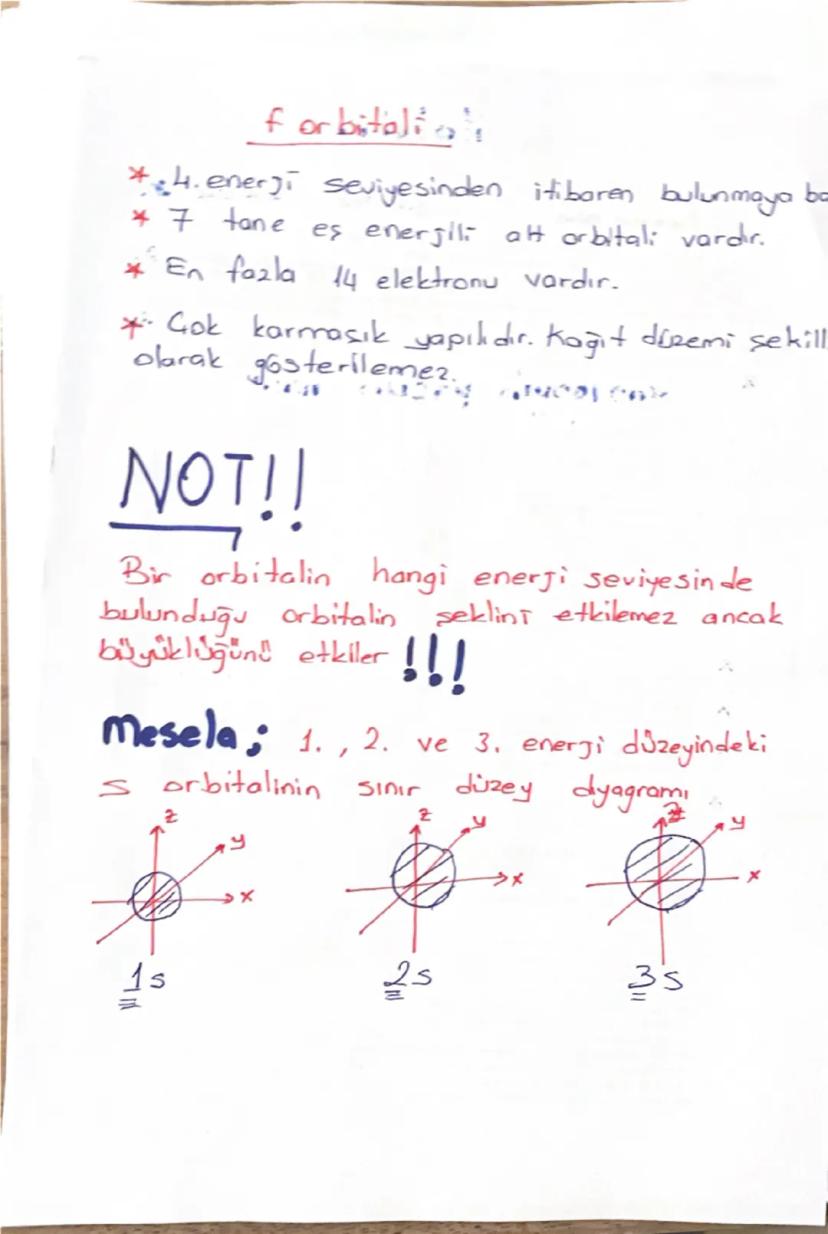 f orbitali
* 4. enerji seviyesinden itibaren bulunmaya ba
* 7 tane eş enerjili alt orbitali vardır.
* En fazla 14 elektronu vardır.
* Çok karmaşık yapılıdır. Kağıt düzemi şekill
olarak gösterilemez.
NOT!!
Bir orbitalin hangi enerji seviyesinde
bulunduğu orbitalin şeklini etkilemez ancak
büyüklüğünü etkiler !!!
Mesela; 1., 2. ve 3. enerji düzeyindeki
s orbitalinin sınır düzey dyagramı
z y x z y x z y x
1s 2s 3s